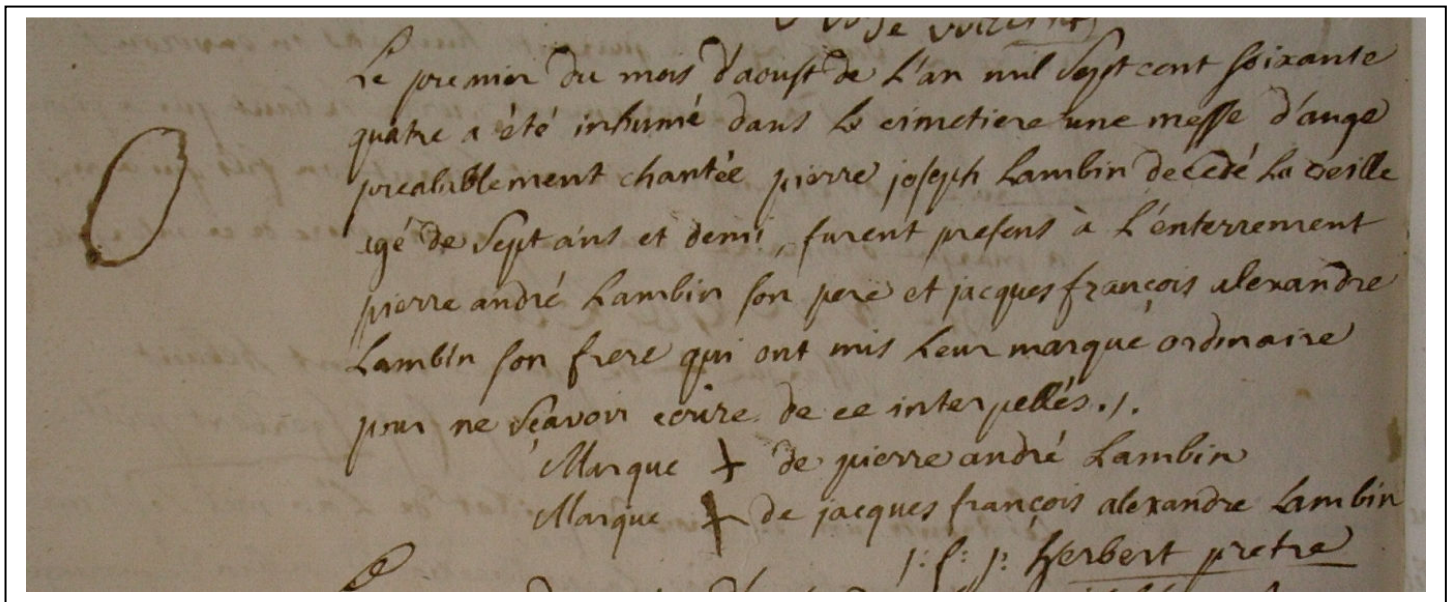 Le premier du mois d'aoust de L'an mil Sept cent soixante
quatre a été inhumé dans Le cimetiere une messe d'ange
prealablement chantée pierre joseph Lambin decedé La veille
agé de Sept ans et demi, furent presens à L'énterrement
pierre andré Lambin son pere et jacques françois alexandre
Lambin son frere qui ont mis Leur marque ordinaire
pour ne Sçavoir ecrire de ce interpellés./.
Marque + de pierre andré Lambin
Marque + de jacques françois alexandre Lambin
j: f: j: Herbert pretre